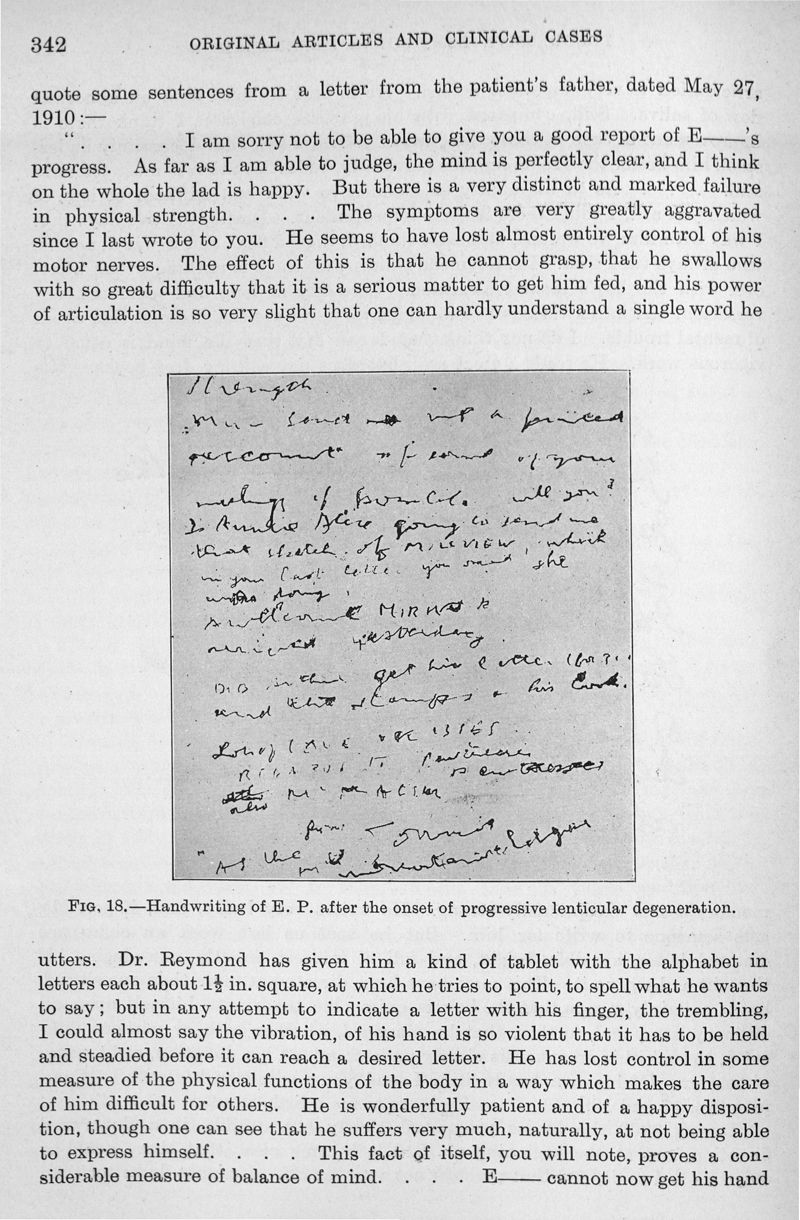 342 ORIGINAL ARTICLES AND CLINICAL CASES
quote some sentences from a letter from the patient's father, dated May 27,
1910:—
“. . . . I am sorry not to be able to give you a good report of E——'s
progress. As far as I am able to judge, the mind is perfectly clear, and I think
on the whole the lad is happy. But there is a very distinct and marked failure
in physical strength. . . . The symptoms are very greatly aggravated
since I last wrote to you. He seems to have lost almost entirely control of his
motor nerves. The effect of this is that he cannot grasp, that he swallows
with so great difficulty that it is a serious matter to get him fed, and his power
of articulation is so very slight that one can hardly understand a single word he
Strength
send a printed
account of your
meeting of will you?
Is Auntie Alice going to send me
that sketch of , which
in your last letter you said she
was doing
yesterday
get his letter
and the stamps his
Love
from
FIG. 18.—Handwriting of E. P. after the onset of progressive lenticular degeneration.
utters. Dr. Reymond has given him a kind of tablet with the alphabet in
letters each about 1½ in. square, at which he tries to point, to spell what he wants
to say; but in any attempt to indicate a letter with his finger, the trembling,
I could almost say the vibration, of his hand is so violent that it has to be held
and steadied before it can reach a desired letter. He has lost control in some
measure of the physical functions of the body in a way which makes the care
of him difficult for others. He is wonderfully patient and of a happy disposi-
tion, though one can see that he suffers very much, naturally, at not being able
to express himself. . . . This fact of itself, you will note, proves a con-
siderable measure of balance of mind. . . . E—— cannot now get his hand